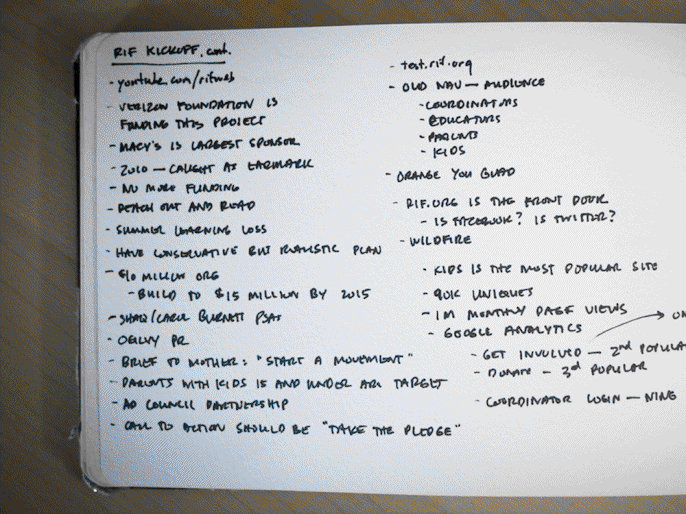 RIF KICKOFF, cont.
- youtube.com/rifweb
- VERIZON FOUNDATION IS
FUNDING THIS PROJECT
- MACY'S IS LARGEST SPONSOR
- 2010 — CAUGHT AS EARMARK
- NO MORE FUNDING
- REACH OUT AND READ
- SUMMER LEARNING LOSS
- HAVE CONSERVATIVE BUT REALISTIC PLAN
- $10 MILLION ORG
- BUILD TO $15 MILLION BY 2015
- SHAQ/CAROL BURNETT PSAs
- OGILVY PR
- BRIEF TO MOTHER: "START A MOVEMENT"
- PARENTS WITH KIDS 15 AND UNDER ARE TARGET
- AD COUNCIL PARTNERSHIP
- CALL TO ACTION SHOULD BE "TAKE THE PLEDGE"
- test.rif.org
- OLD NAV — AUDIENCE
- COORDINATORS
- EDUCATORS
- PARENTS
- KIDS
- ORANGE YOU GLAD
- RIF.ORG IS THE FRONT DOOR
- IS FACEBOOK? IS TWITTER?
- WILDFIRE
- KIDS IS THE MOST POPULAR SITE
- 90K UNIQUES
- 1M MONTHLY PAGE VIEWS
- GOOGLE ANALYTICS
- GET INVOLVED — 2nd POPULA
- DONATE — 3rd POPULAR
- COORDINATOR LOGIN — NINE